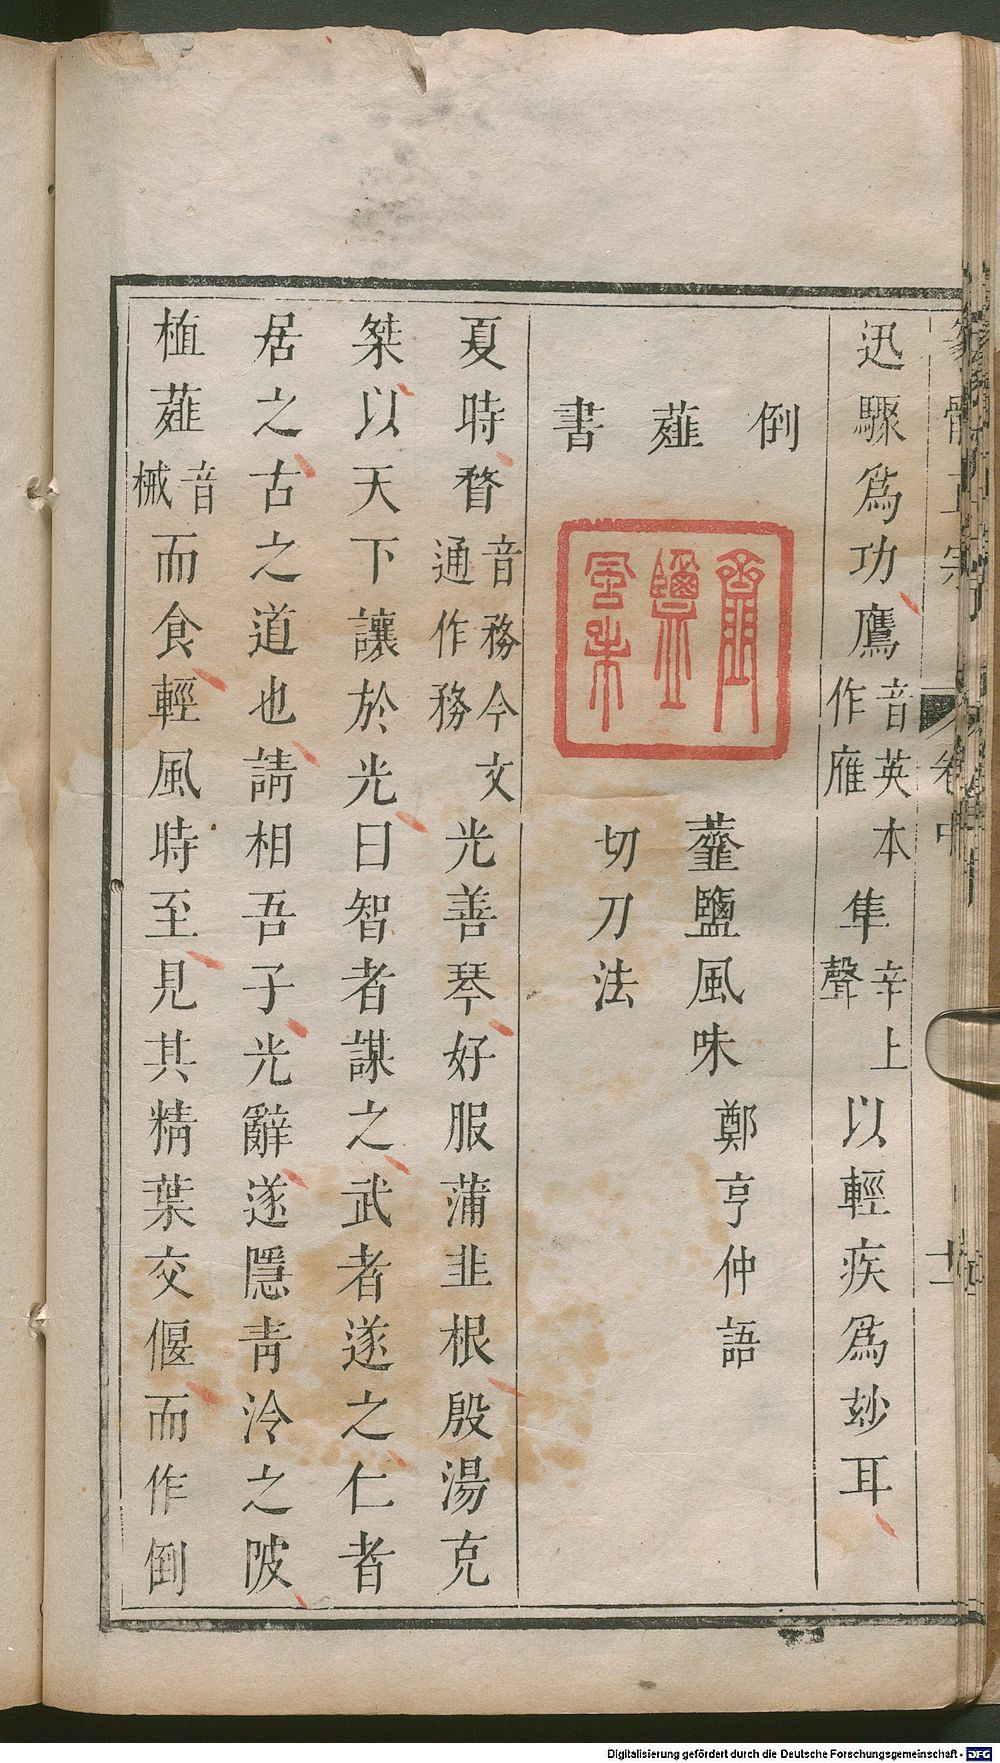 迅驟爲功鷹音英本作鴈隼辛上聲以輕疾爲妙耳
倒薤書
虀鹽風味
虀鹽風味 鄭亨仲語
切刀法
夏時瞀音務今文通作務光善琴好服蒲韭根殷湯克
桀以天下讓於光曰智者謀之武者遂之仁者
居之古之道也請相吾子光辭遂隱青泠之陂
植薤音械而食輕風時至見其精葉交偃而作倒
Digitalisierung gefördert durch die Deutsche Forschungsgemeinschaft - DFG